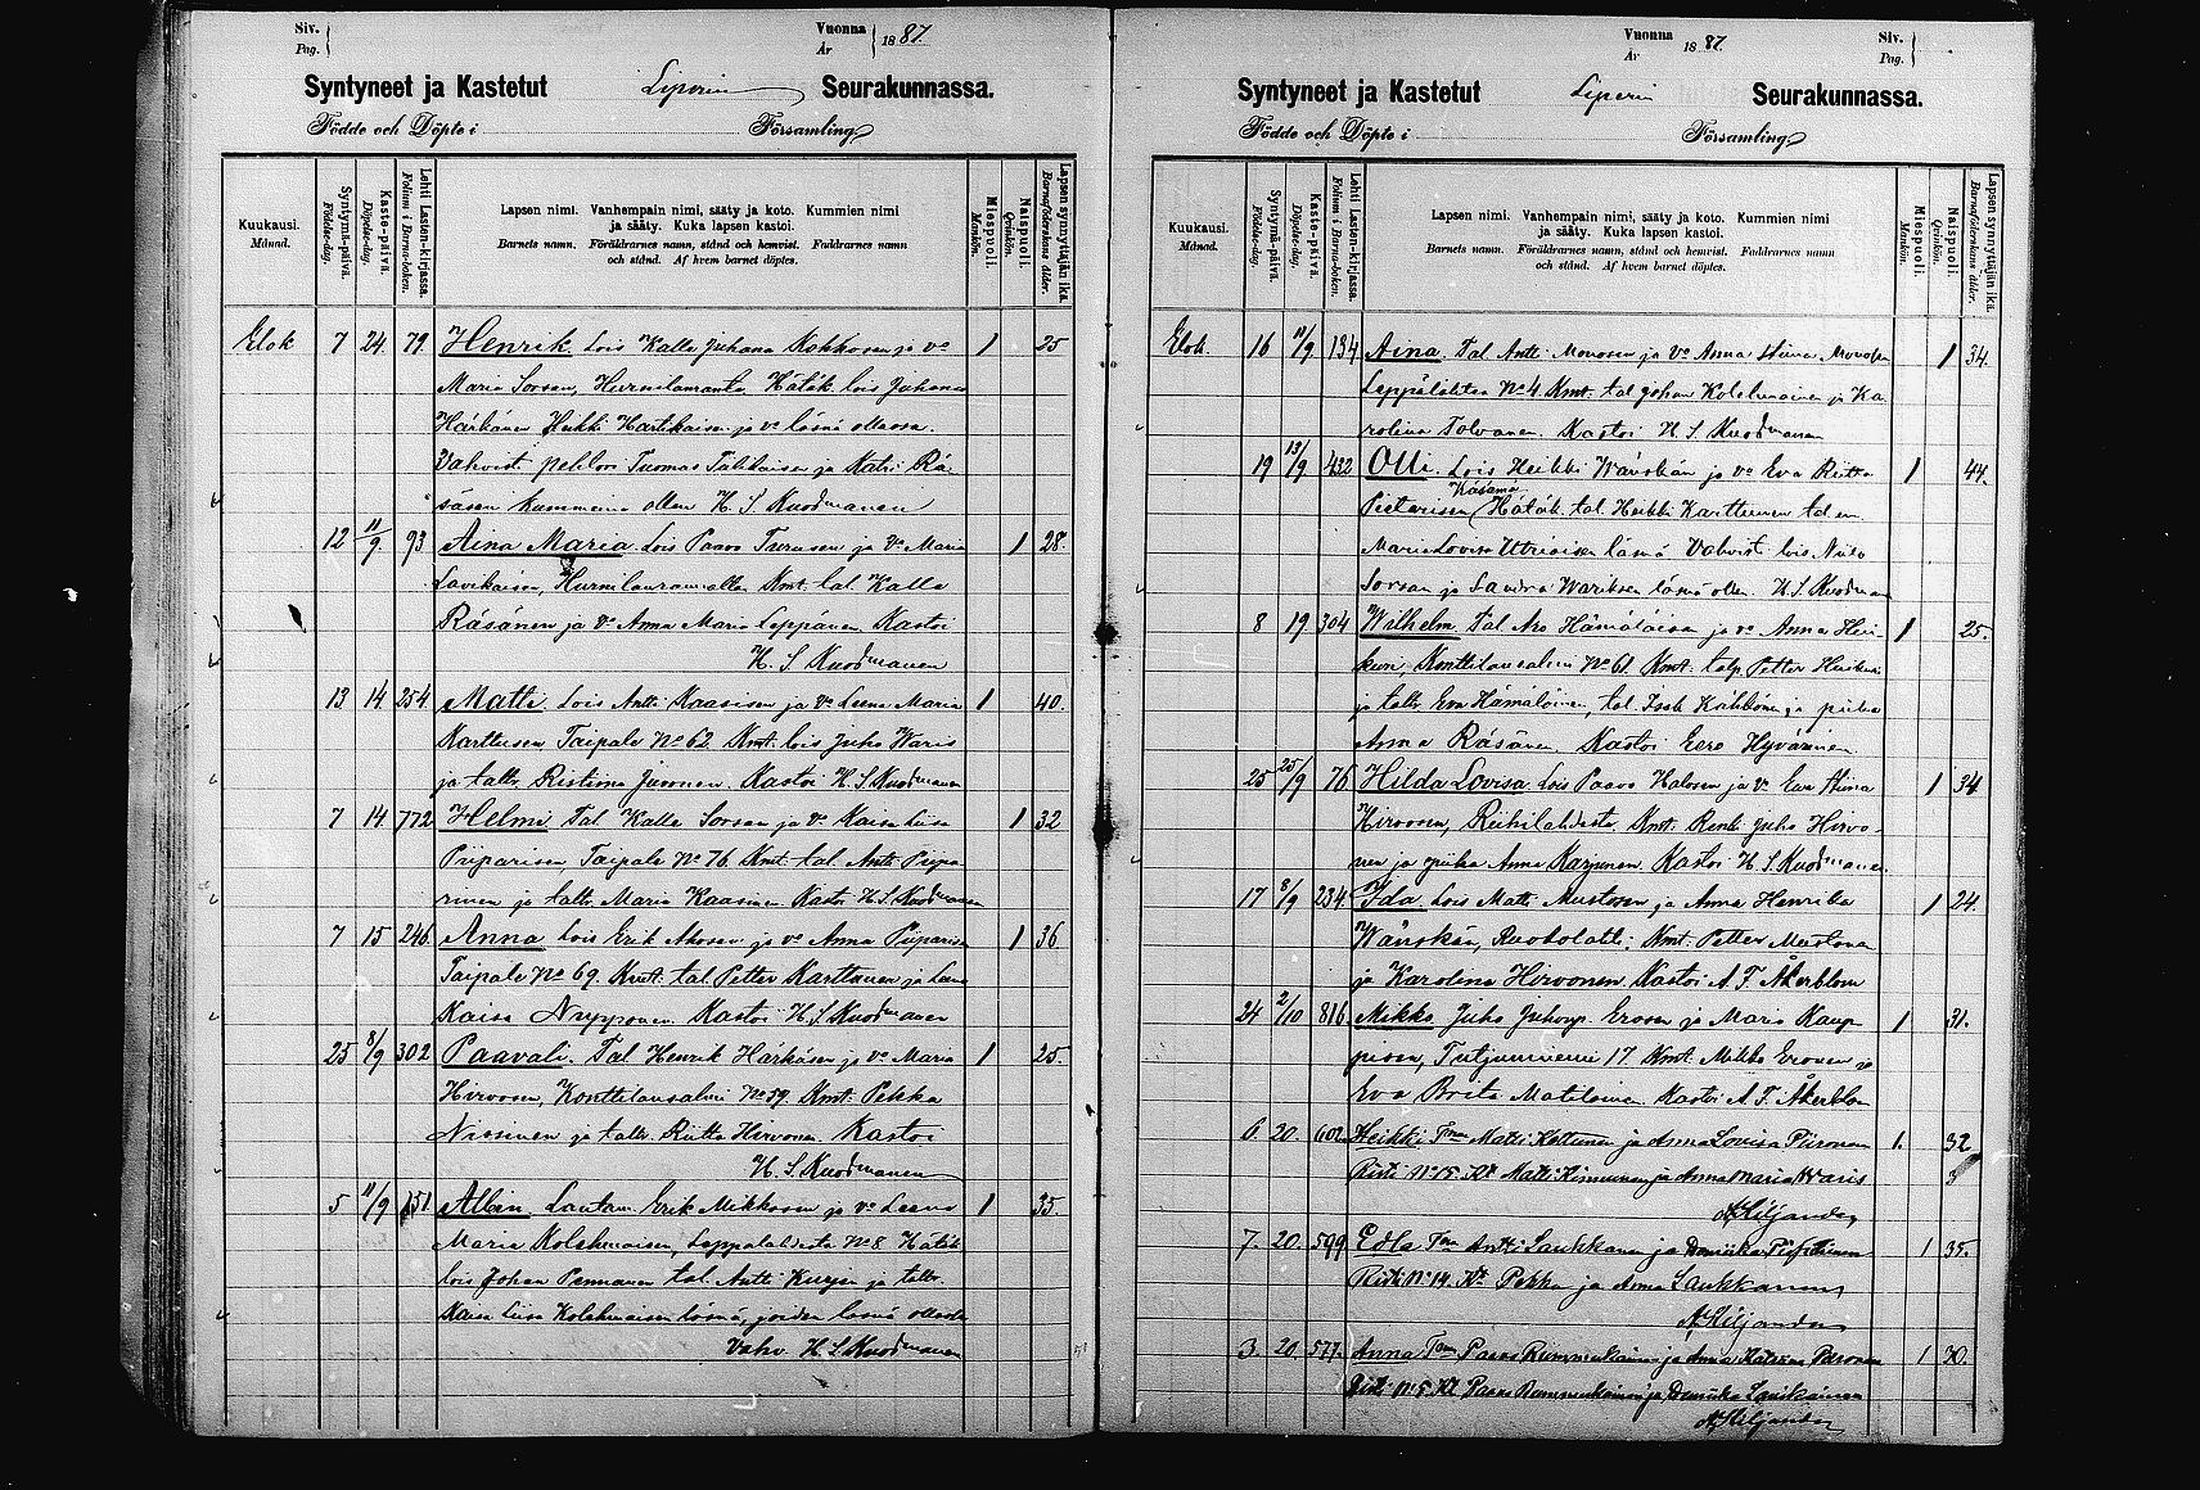 Siv.
Pag.
Vuonna
År
1887.
Syntyneet ja Kastetut Liperin Seurakunnassa.
Födde och Döpte i Församling
Kuukausi.
Månad.
Syntymä-päivä.
Födelse-dag.
Kaste-päivä.
Döpelse-dag.
Lehti Lasten-kirjassa.
Folium i Barna-boken.
Lapsen nimi. Vanhempain nimi, sääty ja koto. Kummien nimi
ja sääty. Kuka lapsen kastoi.
Barnets namn. Föräldrarnes namn, stånd och hemvist. Faddrarnes namn
och stånd. Af hvem barnet döptes.
Miespuoli.
Mankön.
Naispuoli.
Qvinkön.
Lapsen synnyttäjän ikä.
Barnaföderskans ålder.
Elok 7 24. 79. Henrik. Lois Kalle Juhana Kokkosen ja vo 1 25
Maria Sorsan, Hurnilanranta. Hätäk. lois Juhana
Härkönen Heikki Hartikaisen ja vo läsnä ollessa.
Vahvisti pehtori Tuomas Tahkaisen ja Katri Rä-
säsen kummeina ollen H. S. Kuodmanen
12 11/9. 93 Aina Maria. Lois Paavo Turusen ja Vo Maria 1 28.
Lavikaisen, Hurnilanrannalla. Kmt. tal. Kalle
Räsänen ja Vo Anna Maria Leppänen. Kastoi
H. S. Kuodmanen
13 14. 254. Matti. Lois Antti Kaasisen ja Vo Leena Maria 1 40.
Karttusen Taipale No 62. Kmt. lois Juho Waris
ja taltr. Ristiina Juvonen. Kastoi H. S. Kuodmanen
7 14 772 Helmi. Tal. Kalle Sorsan ja Vo Kaisa Liisa 1 32
Piiparisen, Taipale No 76. Kmt. tal. Antti Piipa-
rinen ja taltr. Maria Kaasinen. Kastoi H. S. Kuodmanen
7 15 246. Anna. Lois Erik Ahosen ja vo Anna Piiparisen 1 36
Taipale No 69. Kmt. tal. Petter Karttunen ja Leena
Kaisa Nupponen. Kastoi H. S. Kuodmanen
25 8/9 302 Paavali. Tal. Henrik Härkösen ja Vo Maria 1 25.
Hirvosen, Konttilansalmi No 59. Kmt. Pekka
Nissinen ja taltr. Riitta Hirvonen. Kastoi
H. S. Kuodmanen
5 11/9 151. Albin. Lautam. Erik Mikkosen ja Vo Leena 1 35.
Maria Kolehmaisen, Leppälahdesta No 8. Hätäk
lois Johan Pennanen tal. Antti Kurjen ja taltr.
Kaisa Liisa Kolehmaisen läsnä, joiden läsnä ollessa
Vahv. H. S. Kuodmanen
Vuonna
År
1887.
Siv.
Pag.
Syntyneet ja Kastetut Liperin Seurakunnassa.
Födde och Döpte i Församling
Kuukausi.
Månad.
Syntymä-päivä.
Födelse-dag.
Kaste-päivä.
Döpelse-dag.
Lehti Lasten-kirjassa.
Folium i Barna-boken.
Lapsen nimi. Vanhempain nimi, sääty ja koto. Kummien nimi
ja sääty. Kuka lapsen kastoi.
Barnets namn. Föräldrarnes namn, stånd och hemvist. Faddrarnes namn
och stånd. Af hvem barnet döptes.
Miespuoli.
Mankön.
Naispuoli.
Qvinkön.
Lapsen synnyttäjän ikä.
Barnaföderskans ålder.
Elok. 16 11/9. 134 Aina. Tal. Antti Monosen ja Vo Anna Stiina 1 34.
Leppälahtea No 4. Kmt. tal. Johan Kolehmainen ja Ka-
rolina Tolvanen. Kastoi H. S. Kuodmanen
19 13/9 432 Olli. Lois Heikki Wänskän ja vo Eva Riitta 1 44.
Käsämä
Pietarisen / Hätäk. tal. Heikki Karttunen tal. em.
Maria Lovisa Utriaisen läsnä Vahvist. lois Niilo
Sorsan ja Sandra Wariksen läsnä ollen. H. S. Kuodman
8 19. 304 Wilhelm. Tal. Aro Hämäläisen ja vo Anna Hei- 1 25.
kuri, Konttilansalmi No 61. Kmt. talp. Petter
ja taltr. Eva Hämäläinen, tal. Isak Kähkönen ja piika
Anna Räsänen. Kastoi Eero Hyvärinen.
25 25/9 76 Hilda Lovisa. Lois Paavo Halosen ja Vo Eva Stiina 1 34
Hirvosen, Riihilahdesta. Kmt. Renki Juho Hirvo-
nen ja piika Anna Karjunen. Kastoi H. S. Kuodmanen.
17 8/9 234. Ida. Lois Matti Mustosen ja Anna Henrika 1 24.
Wänskän, Ruokolahti. Kmt. Petter Mustonen
ja Karolina Hirvonen. Kastoi A. F. Åkerblom
24 2/10 816 Mikko. Juho Juhonp. Erosen ja Maria Kaup- 1 31.
pisen, Tutjunniemi 17. Kmt. Mikko Eronen ja
Eva Brita Matilainen. Kastoi A. F. Åkerblom
6. 20. 602. Heikki. Tman Matti Kettunen ja Anna Lovisa Piironen 1. 32
Risti No 15. Kt Matti Kinnunen ja Anna Maria Waris 3
A. Kiljander
7. 20. 599 Edla Tman Antti Laukkanen ja 1 35.
Risti No 14. Kt Pekka ja Anna Laukkanen
A. Kiljander
3. 20. 577. Anna Tman Paavo Rummukainen ja Anna Katrina Piironen 1 30.
Risti No 5. Kt Paavo Rummukainen ja Lavikainen
A. Kiljander